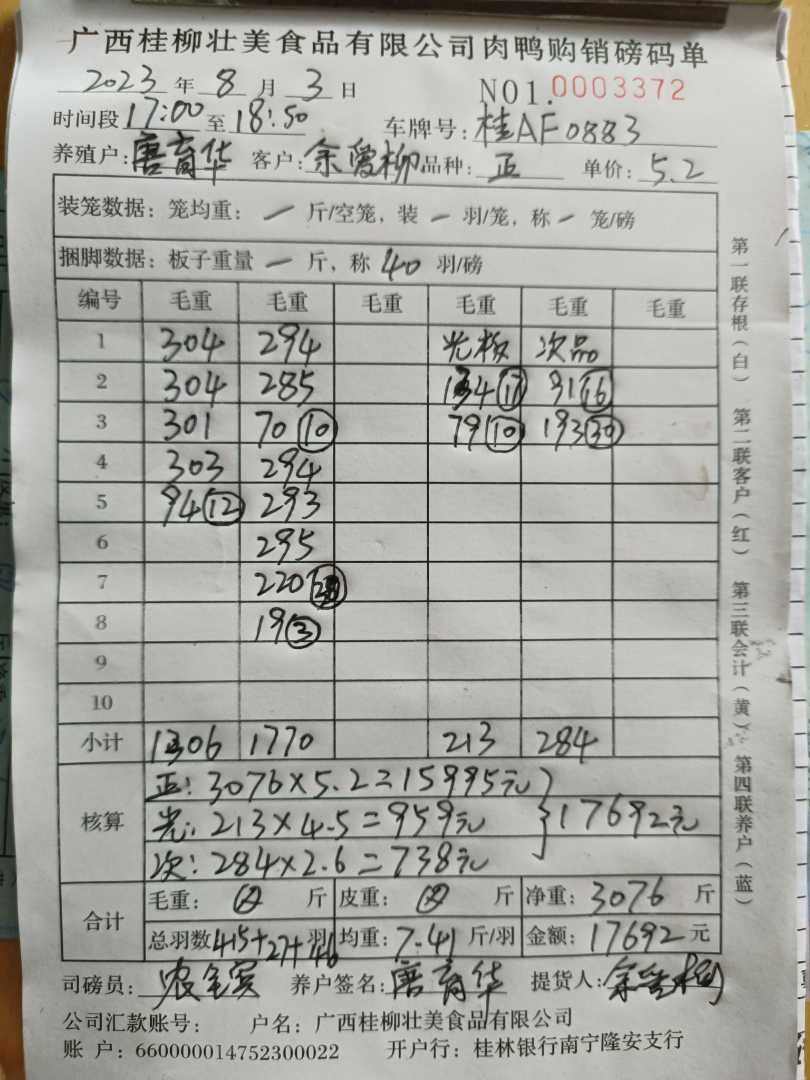 广西桂柳壮美食品有限公司肉鸭购销磅码单
2023 年 8 月 3 日 NO1.0003372
时间段 17:00 至 18:50 车牌号: 桂AF0883
养殖户: 唐育华 客户: 余爱柳 品种: 正 单价: 5.2
装笼数据: 笼均重: 一 斤/空笼, 装 一 羽/笼, 称 一 笼/磅
捆脚数据: 板子重量 一 斤, 称 40 羽/磅
编号 毛重 毛重 毛重 毛重 毛重 毛重
1 304 294 光板 次品
2 304 285 134 ⑰ 91 ⑯
3 301 70 ⑩ 79 ⑩ 193 ㉚
4 303 294
5 94 ⑫ 293
6 295
7 220
8 19 ③
9
10
小计 1306 1770 213 284
核算
正: 3076×5.2=15995元
光: 213×4.5=959元 } 17692元
次: 284×2.6=738元
合计
毛重: 斤 皮重: 斤 净重: 3076 斤
总羽数 415+27+46 羽 均重: 7.41 斤/羽 金额: 17692 元
司磅员: 养户签名: 唐育华 提货人:
公司汇款账号: 户名: 广西桂柳壮美食品有限公司
账 户: 660000014752300022 开户行: 桂林银行南宁隆安支行
第一联存根(白) 第二联客户(红) 第三联会计(黄) 第四联养户(蓝)